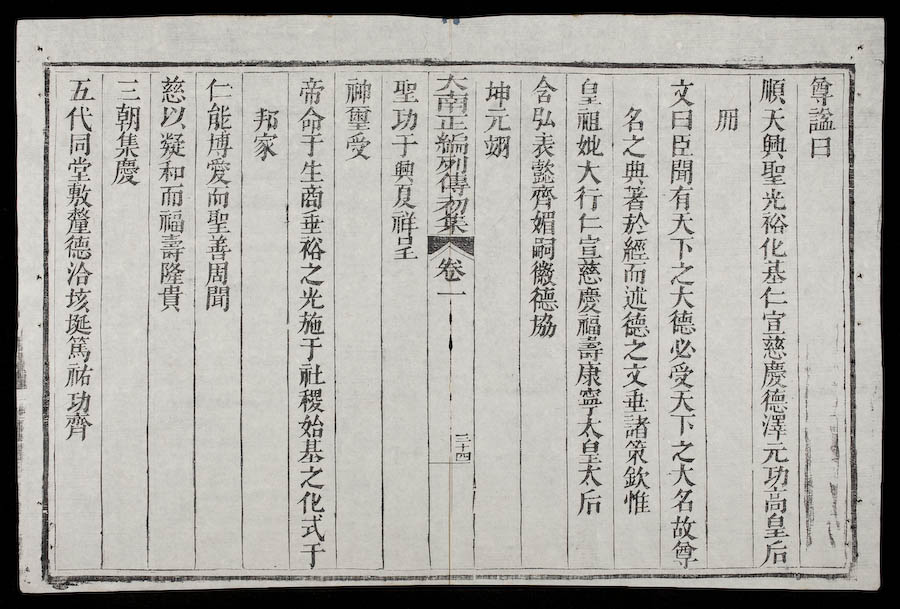 尊謚曰
順天興聖光裕化基仁宣慈慶德澤元功高皇后
冊
文曰臣聞有天下之大德必受天下之大名故尊
名之典著於經而述德之文垂諸策欽惟
皇祖妣大行仁宣慈慶福壽康寧太皇太后
含弘表懿齊媚嗣徽德協
坤元翊
大南正編列傳初集 卷一 三十四
聖功于興夏祥呈
神璽受
帝命于生商垂裕之光施于社稷始基之化式于
邦家
仁能博愛而聖善周聞
慈以凝和而福壽隆貴
三朝集慶
五代同堂敷釐德洽垓埏篤祐功齊